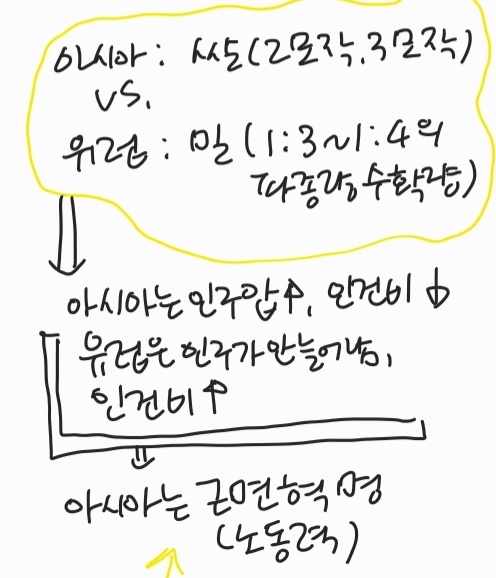 아시아 : 쌀(2모작, 3모작)
VS.
위럽 : 밀(1:3~1:4의
파종량 수확량)
아시아는 인구압↑, 인건비↓
유럽은 인구가 안늘어남,
인건비↑
아시아는 근면혁명
(노동력)